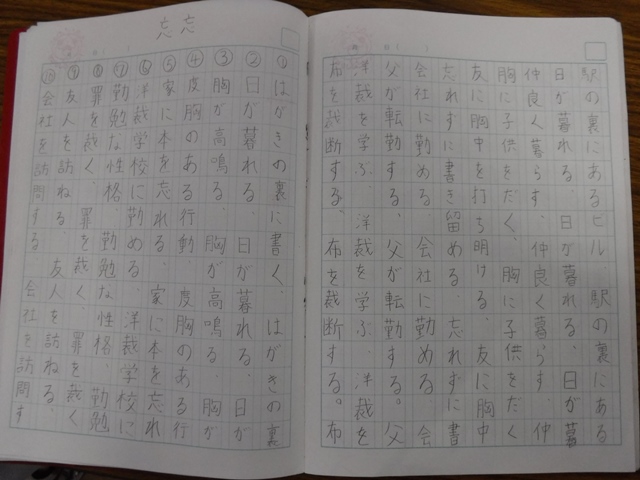 駅の裏にあるビル、駅の裏にある
日が暮れる、日が暮れる、日が暮
仲良く暮らす、仲良く暮らす、仲
胸に子供をだく、胸に子供をだく
友に胸中を打ち明ける、友に胸中
忘れずに書き留める、忘れずに書
会社に勤める、会社に勤める、会
父が転勤する。父が転勤する。父
洋裁を学ぶ、洋裁を学ぶ、洋裁を
布を裁断する。布を裁断する。布
忘 忘
①はがきの裏に書く、はがきの裏
②日が暮れる、日が暮れる、日が
③胸が高鳴る、胸が高鳴る、胸が
④度胸のある行動、度胸のある行
⑤家に本を忘れる、家に本を忘れ
⑥洋裁学校に勤める、洋裁学校に
⑦勤勉な性格、勤勉な性格、勤勉
⑧罪を裁く、罪を裁く、罪を裁く
⑨友人を訪ねる、友人を訪ねる
⑩会社を訪問する、会社を訪問す